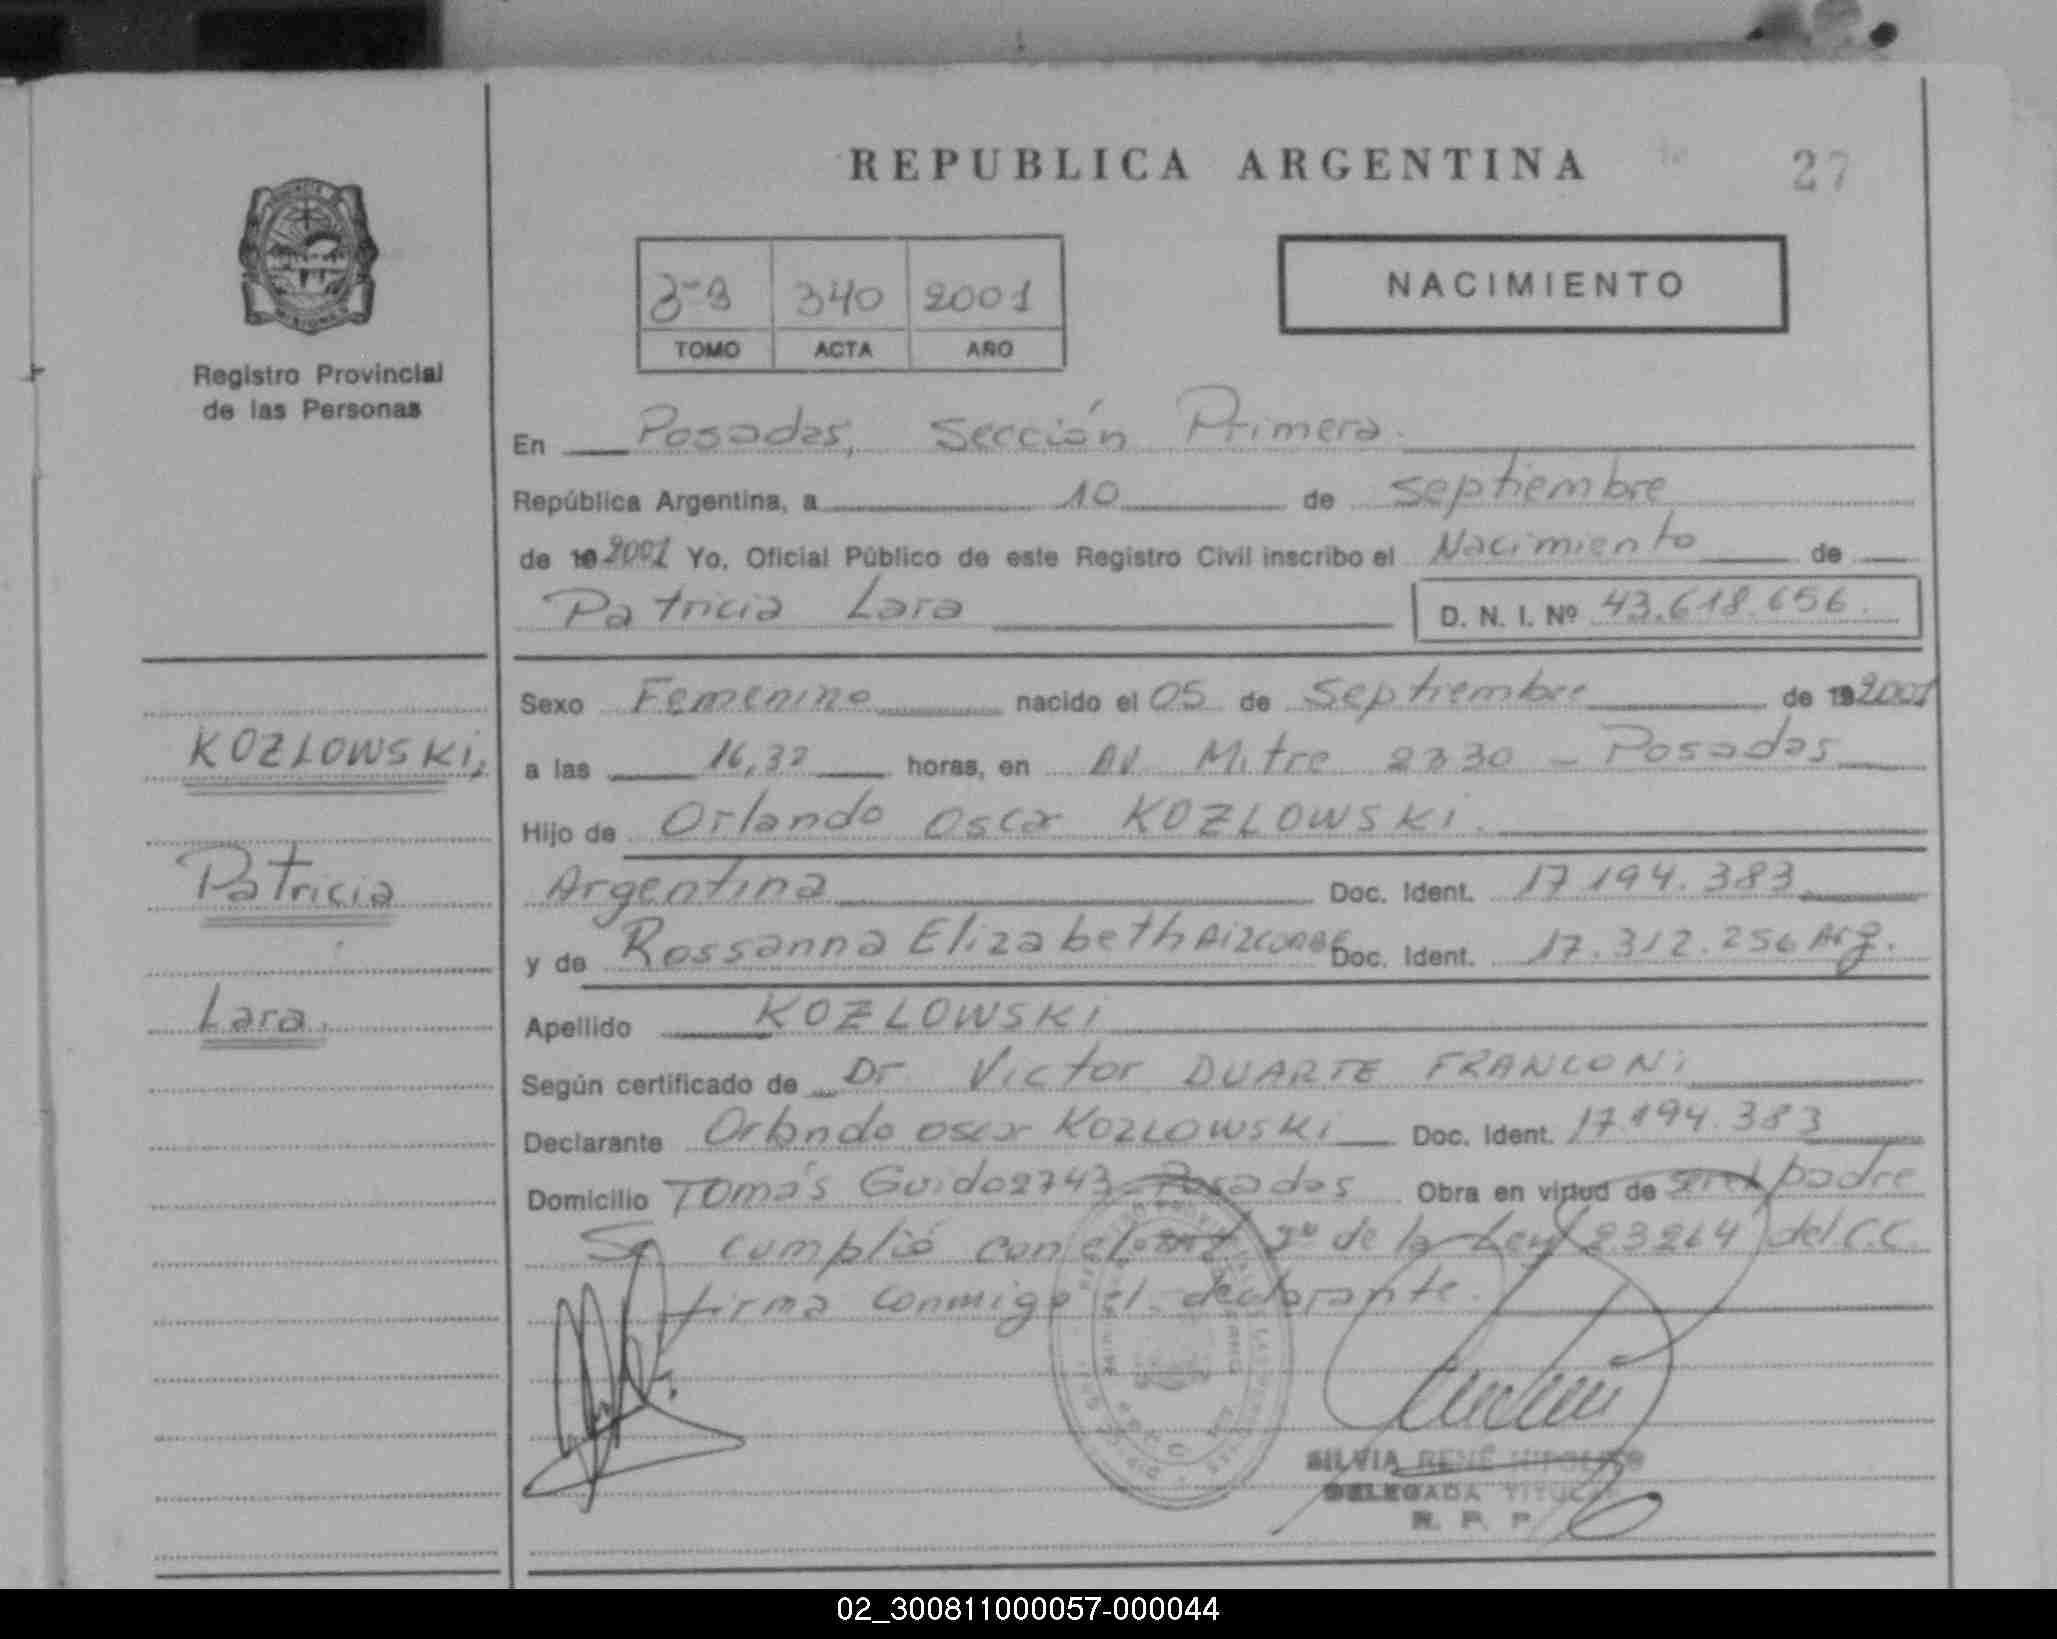 REPUBLICA ARGENTINA
27
Registro Provincial
de las Personas
340 2001
TOMO ACTA AÑO
NACIMIENTO
En Posadas, Sección Primera.
República Argentina, a 10 de septiembre
de 19 2001 Yo, Oficial Público de este Registro Civil inscribo el Nacimiento de
Patricia Lara D. N. I. Nº 43.618.656.
KOZLOWSKI,
Patricia
Lara.
Sexo Femenino nacido el 05 de Septiembre de 19 2001
a las 16,32 horas, en AV. Mitre 2330 - Posadas
Hijo de Orlando Oscar KOZLOWSKI.
Argentina Doc. Ident. 17 194.383
y de Rossanna Elizabeth Doc. Ident. 17.312.256 Arg.
Apellido KOZLOWSKI
Según certificado de Dr Victor DUARTE FRANCONi
Declarante Orlando oscar KOZLOWSKI Doc. Ident. 17.194.383
Domicilio Tomás Guido 2743 - Posadas Obra en virtud de ser el padre
Se cumplió con el 2º de la Ley 23264 del C.C.
firma conmigo el declarante.
SILVIA RENÉ HIPOLITO
DELEGADA TITULAR
R. P. P.
02_300811000057-000044